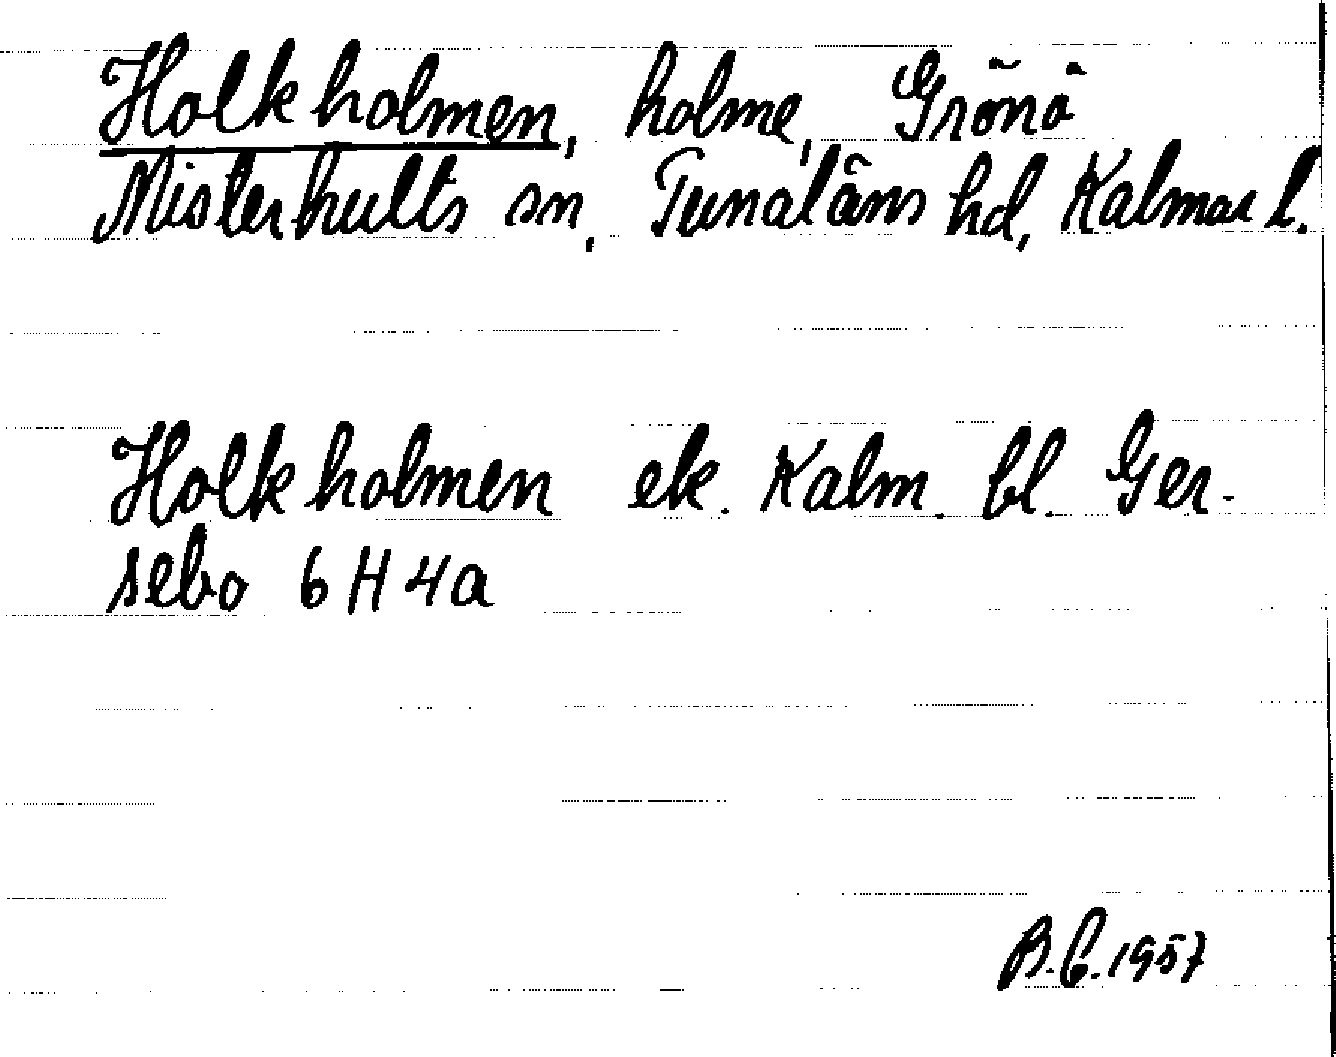 Holkholmen, holme, Grönö
Misterhults sn, Tunaläns hd, Kalmar l.
Holkholmen ek. Kalm. bl. Ger-
sebo 6 H 4a
B.E. 1957